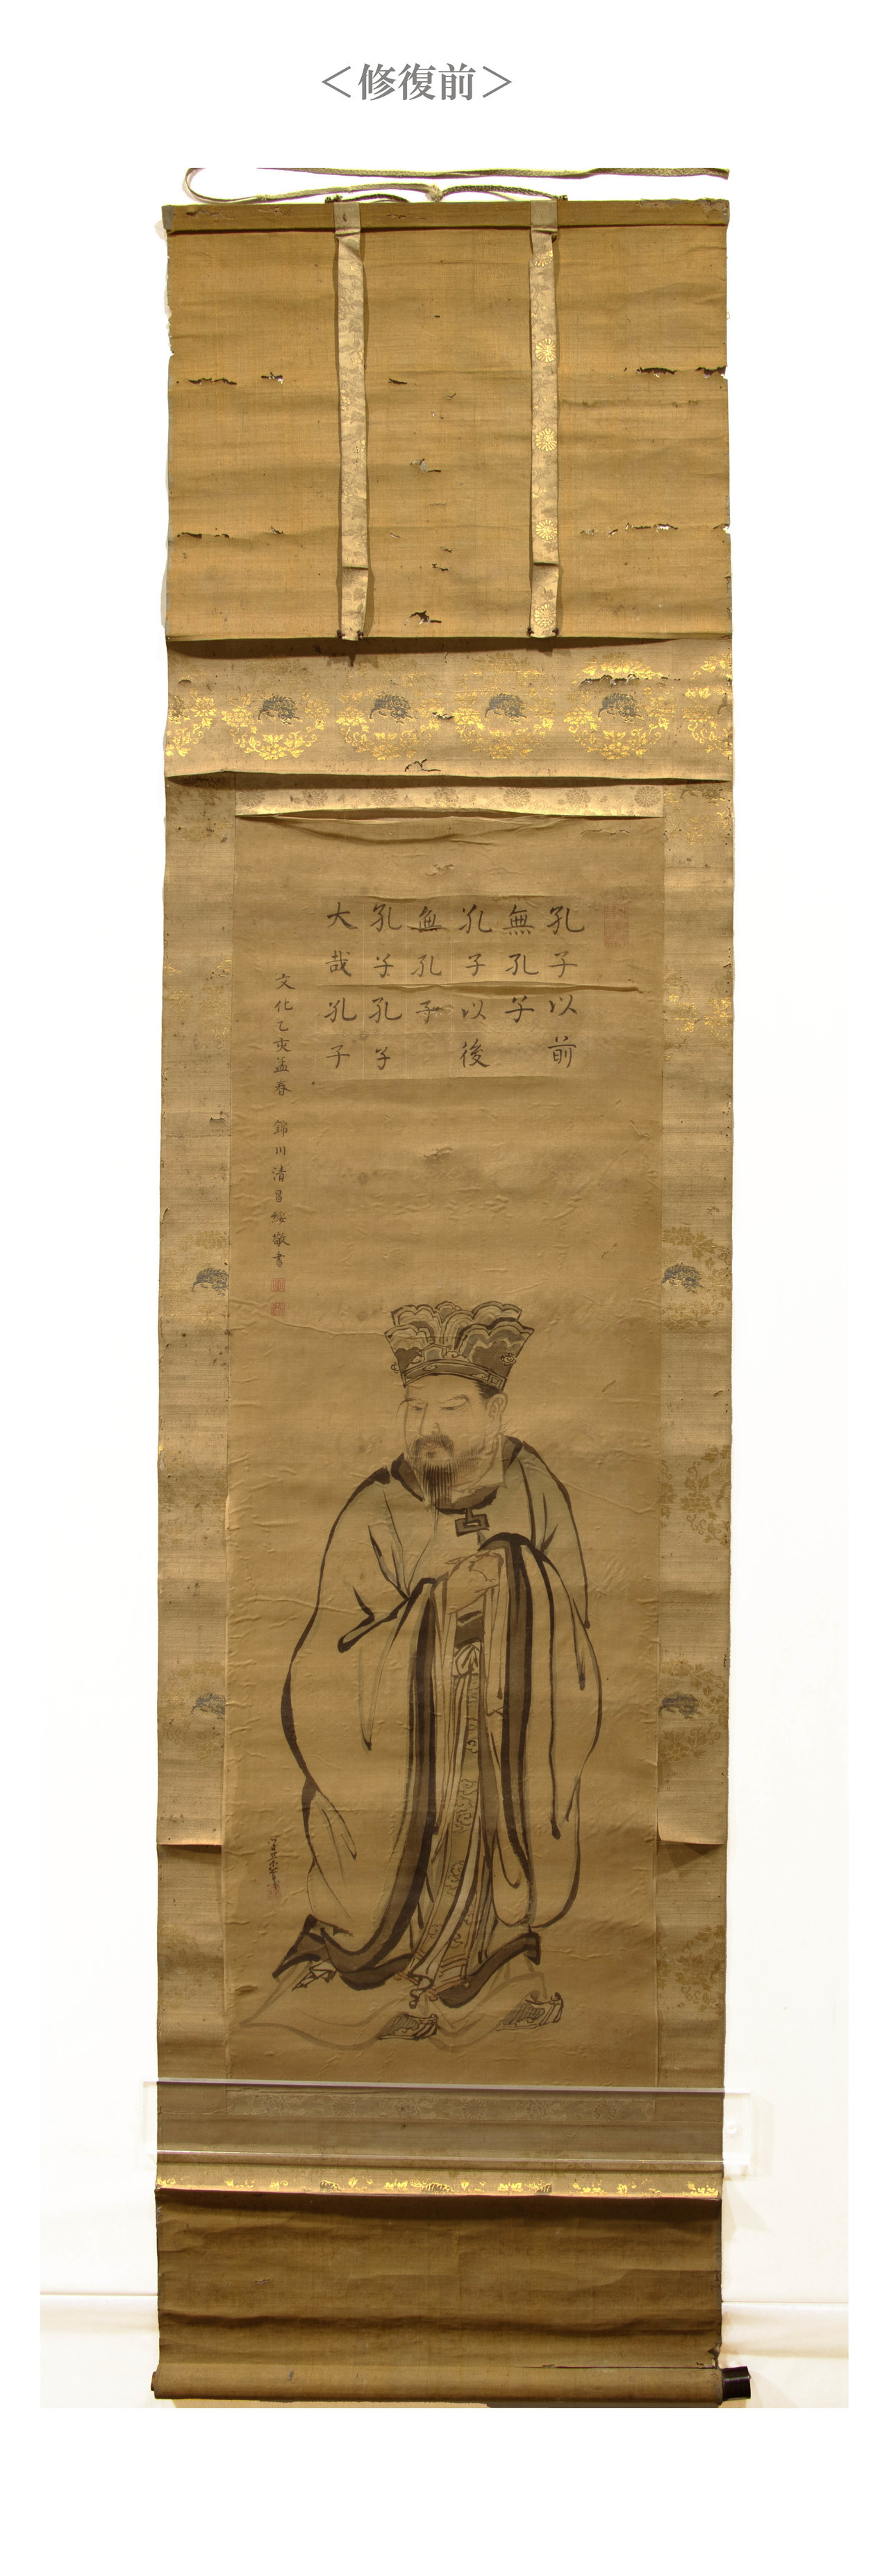 ＜修復前＞
孔子以前
無孔子
孔子以後
無孔子
孔子孔子
大哉孔子
文化乙亥孟春　錦川清昌綏敬書